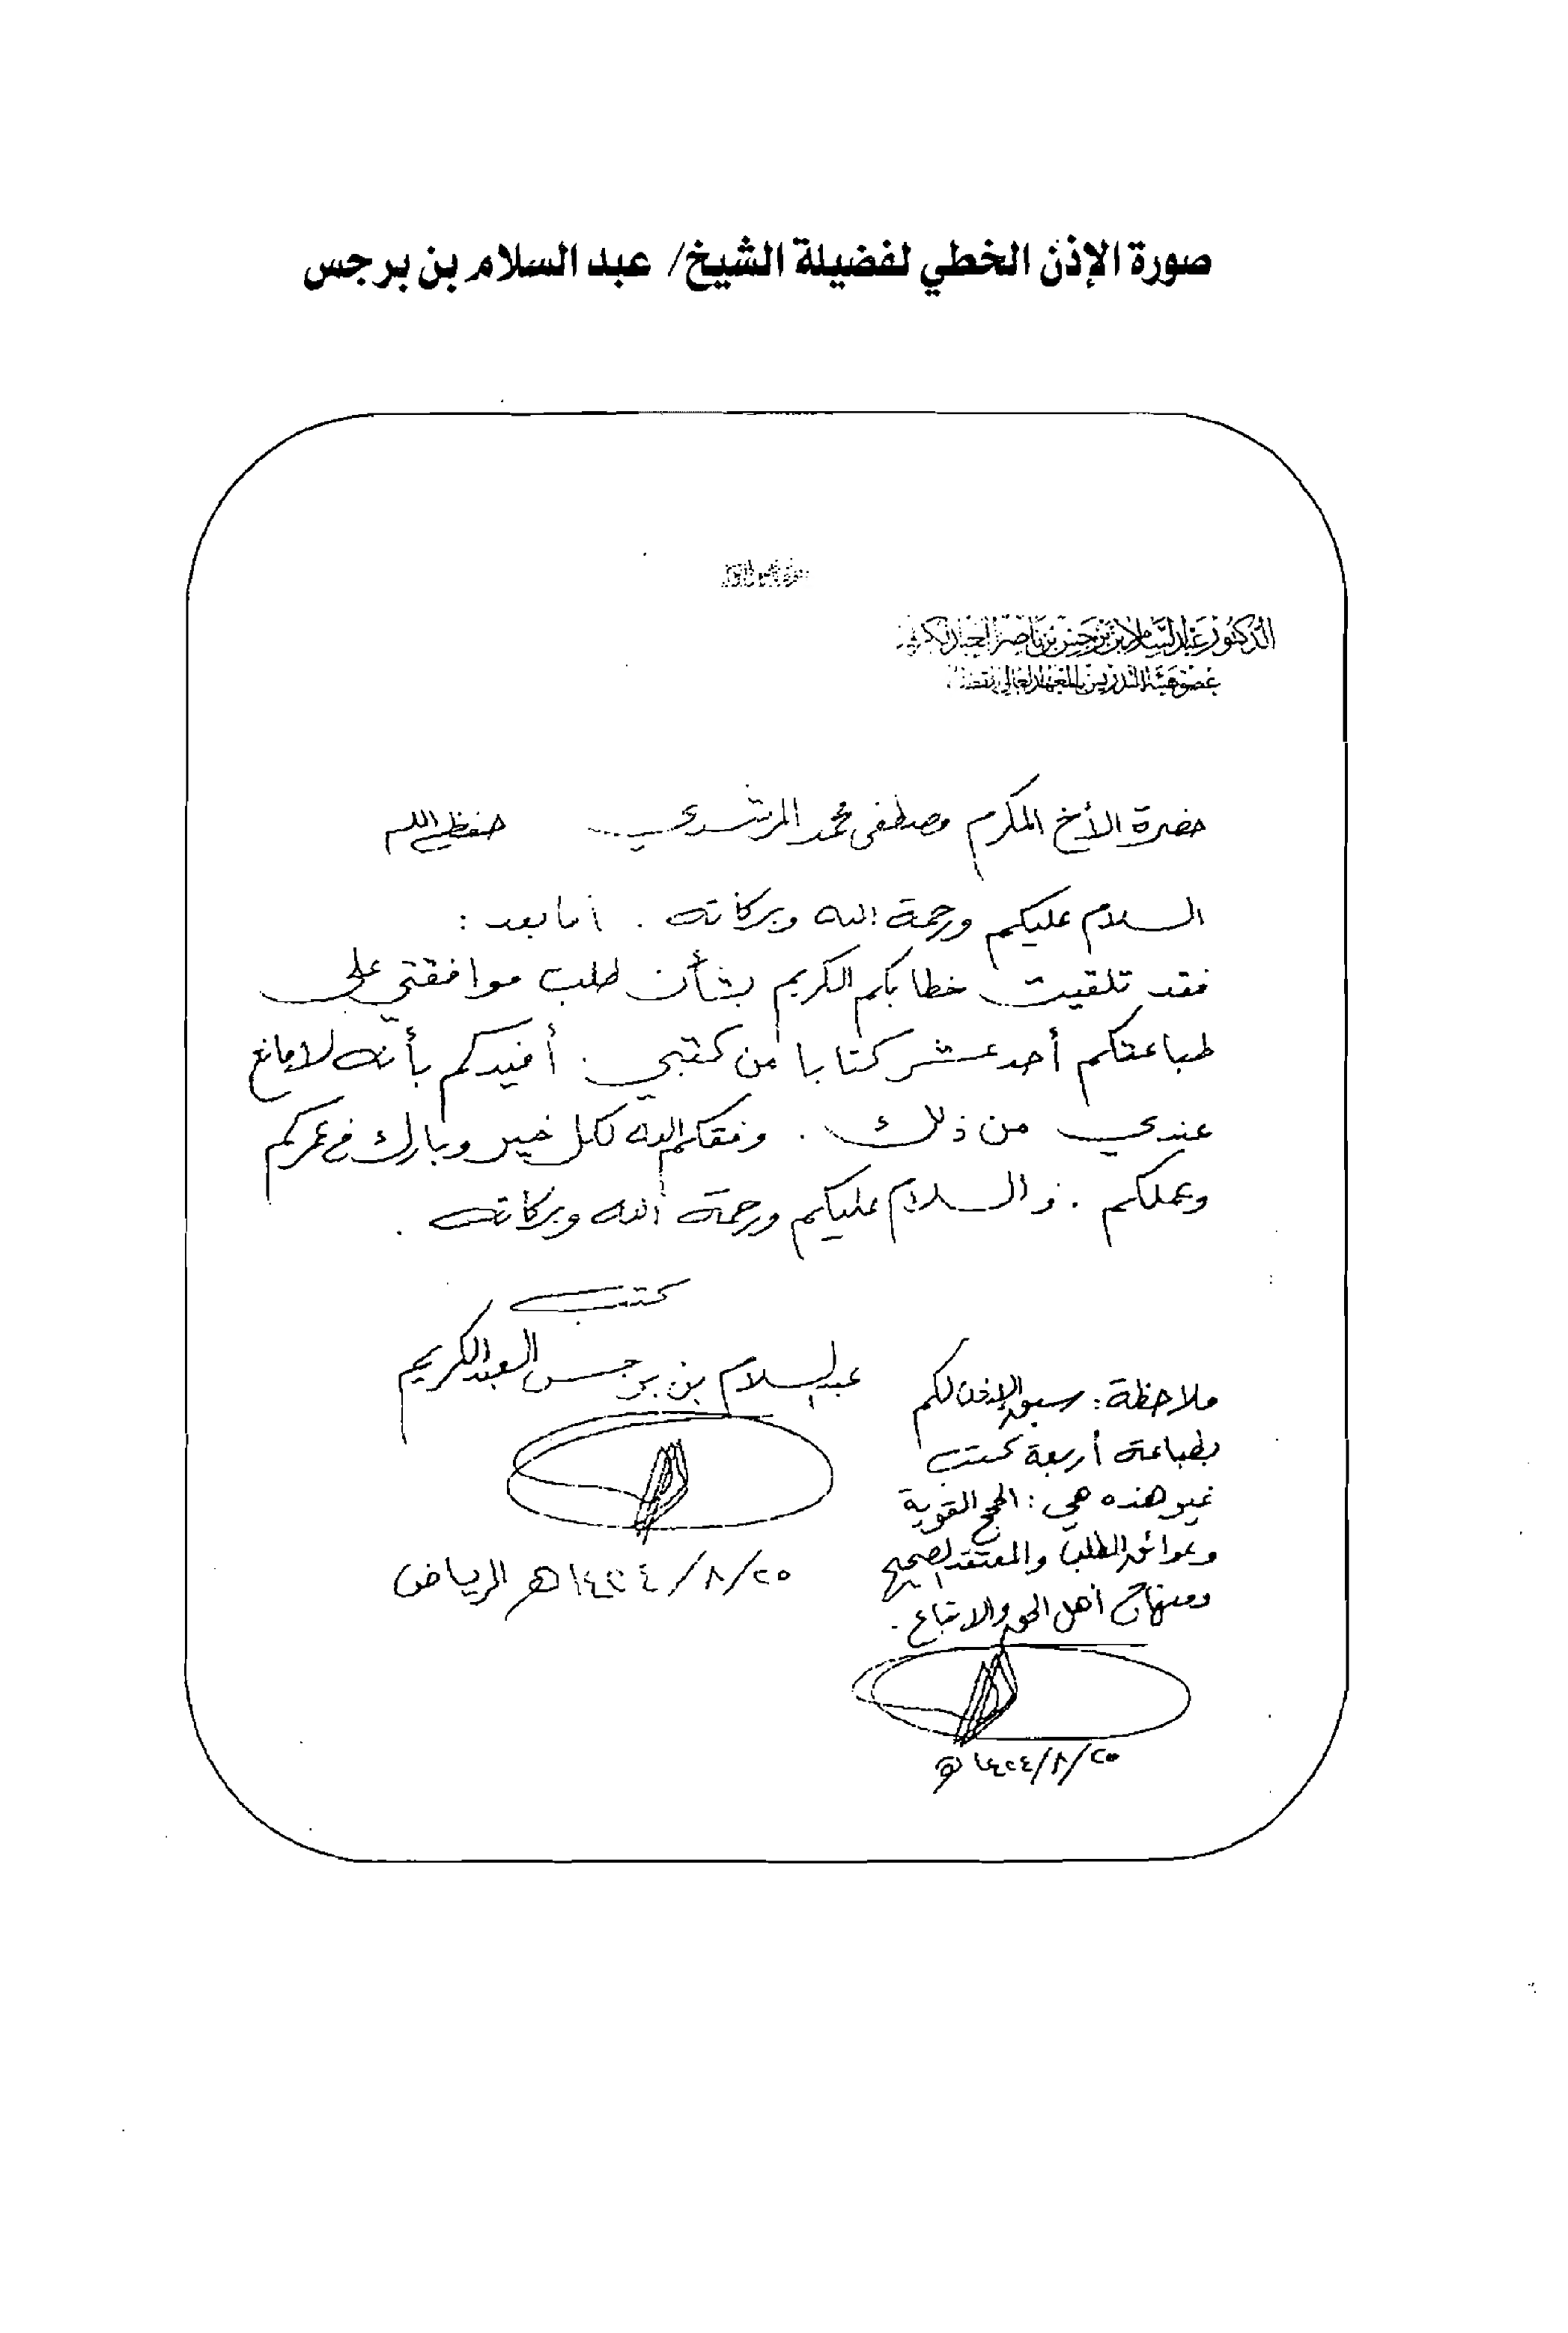 صورة الإذن الخطي لفضيلة الشيخ/ عبد السلام بن برجس
الدكتور عبدالسلام بن برجس بن ناصر العبدالكريم
عضو هيئة التدريس بالمعهد العالي للقضاء
حضرة الأخ المكرم مصطفى محمد المرشدي حفظه الله
السلام عليكم ورحمة الله وبركاته . أما بعد :
فقد تلقيت خطابكم الكريم بشأن طلب موافقتي على
طباعتكم أحد عشر كتابا من كتبي . أفيدكم بأنه لا مانع
عندي من ذلك . وفقكم الله لكل خير وبارك في عمركم
وعملكم . والسلام عليكم ورحمة الله وبركاته .
كتبه
عبدالسلام بن برجس العبدالكريم
٢٥/٨/١٤٢٤هـ الرياض
ملاحظة : سبق الإذن لكم
بطباعة أربعة كتب
غير هذه هي : الحجج القوية
وعوائق الطلب والمعتقد الصحيح
ومنهاج أهل الحق والاتباع .
٢٥/٨/١٤٢٤هـ